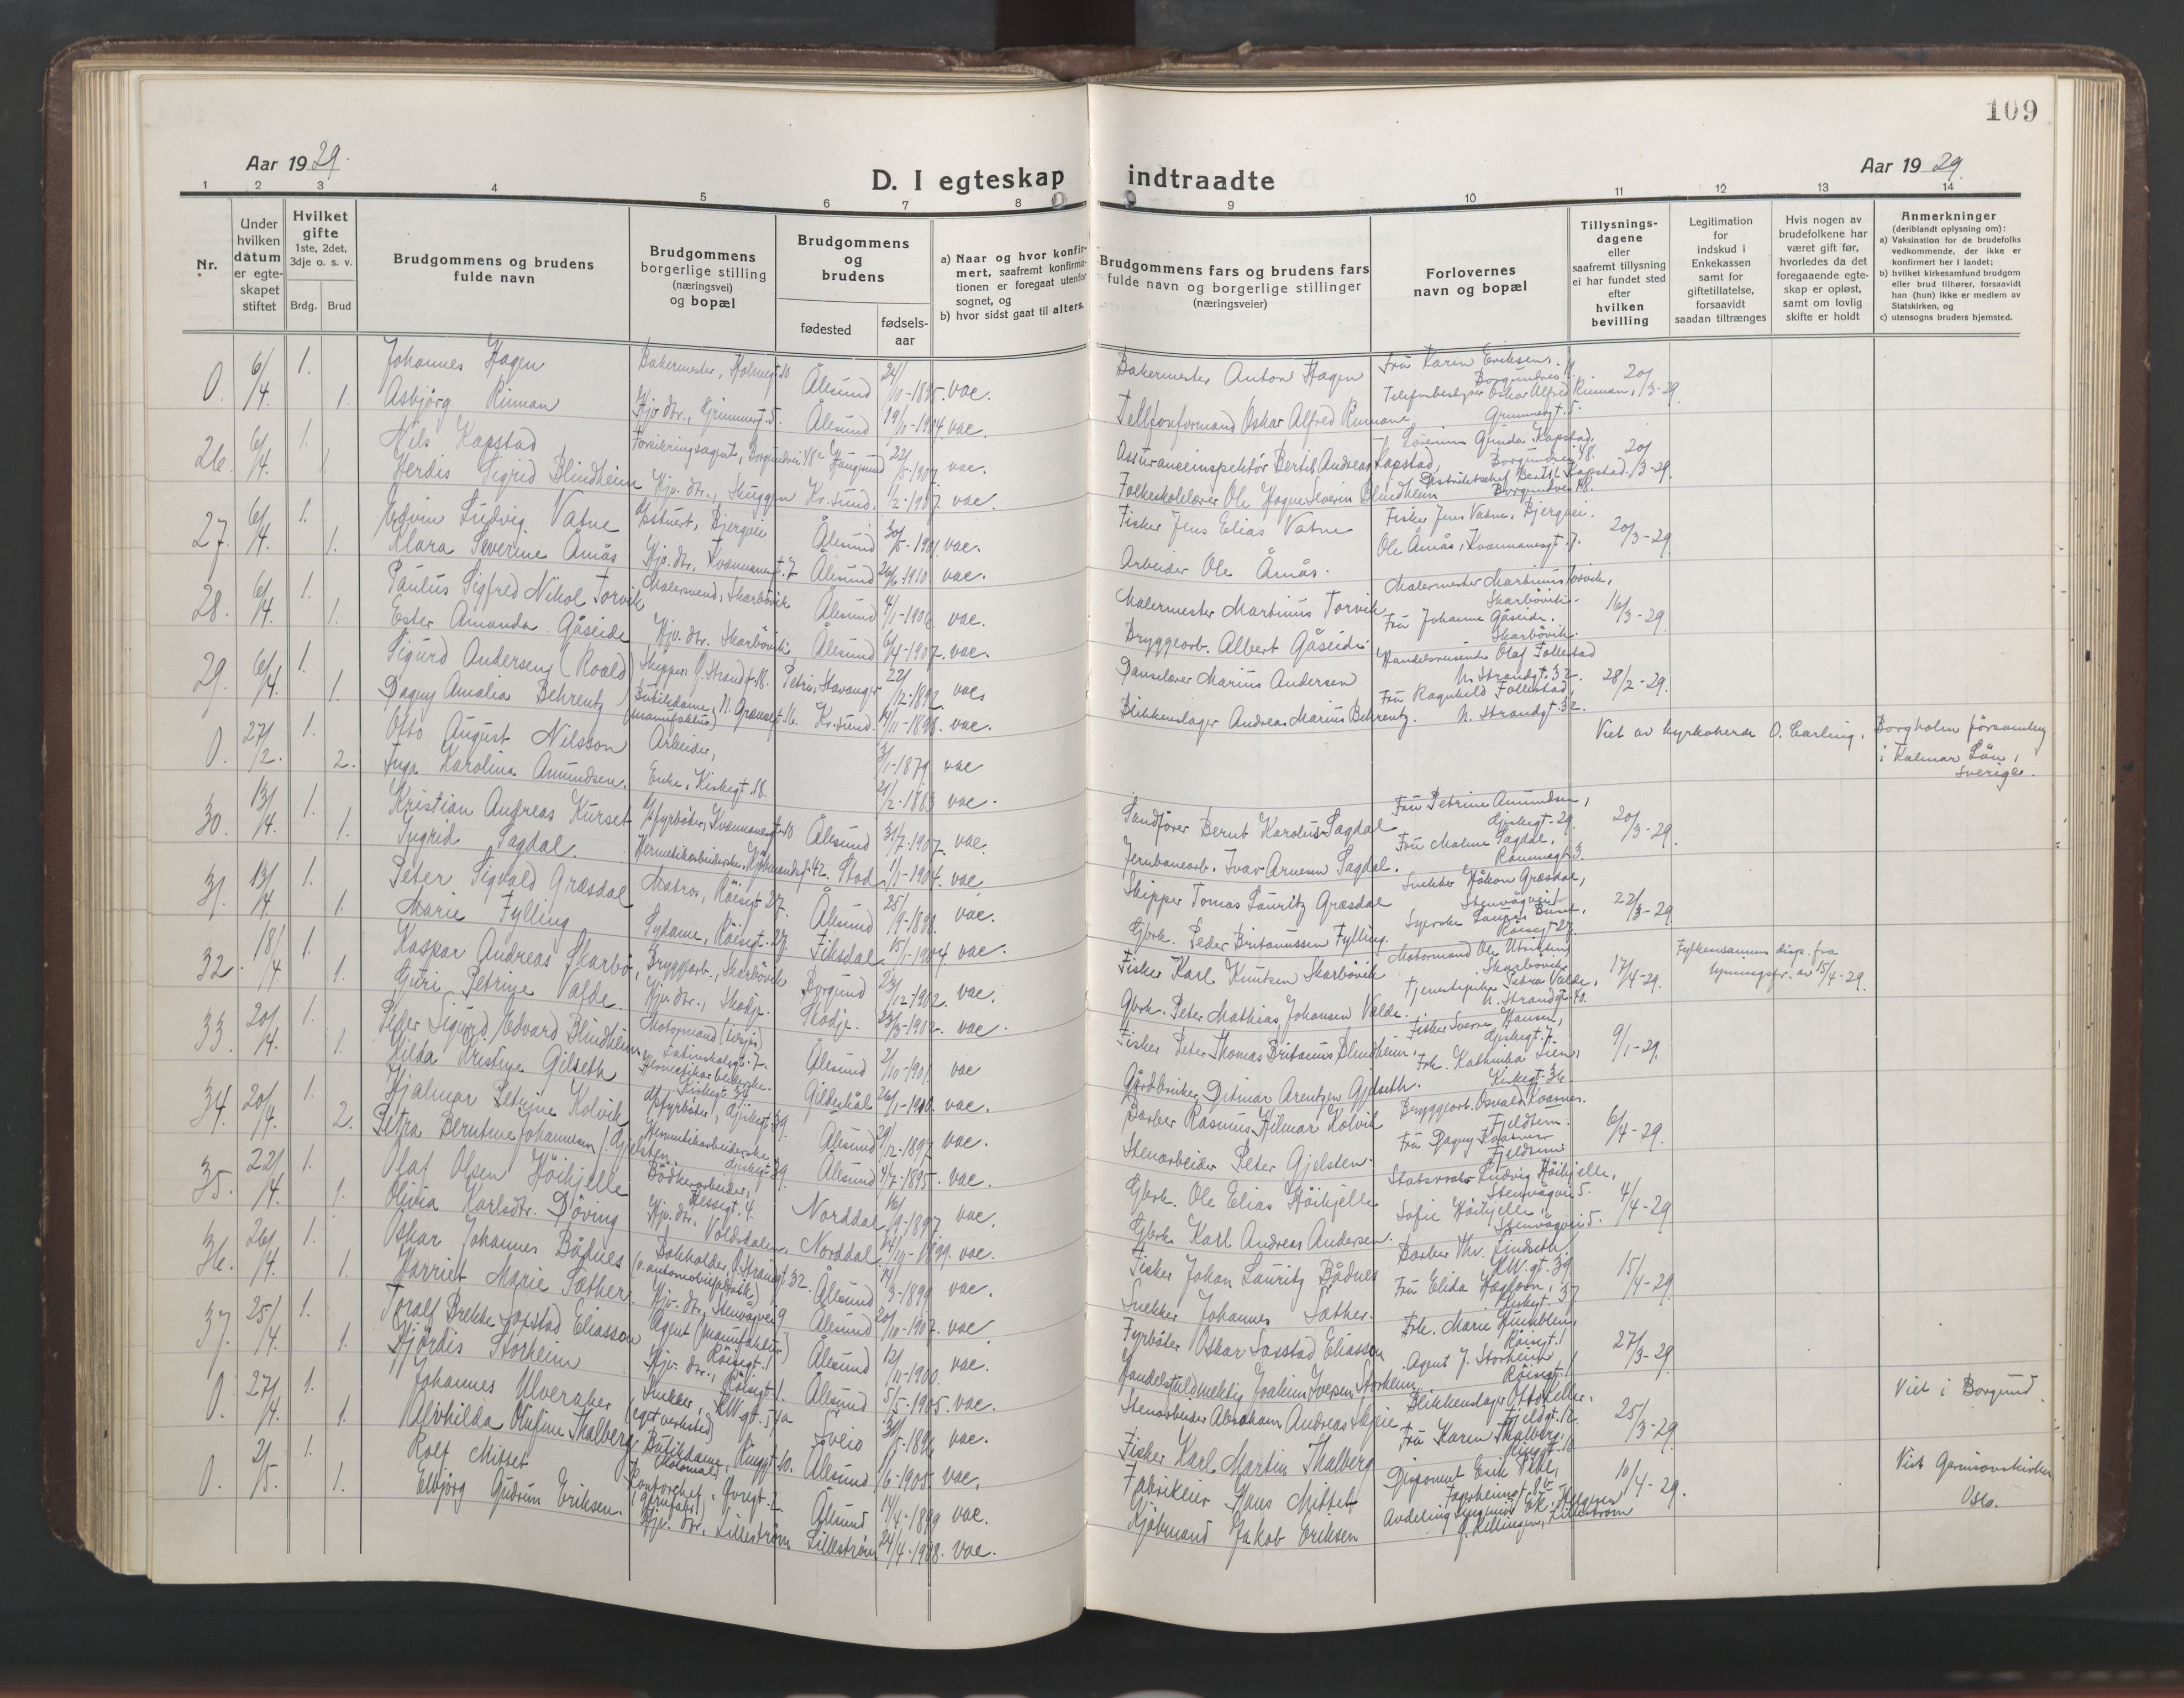 109
Aar 1929.
Aar 1929.
D. I egteskap indtraadte
1 2 3 4 5 6 7 8 9 10 11 12 13 14
Nr.
Under hvilken datum er egte-skapet stiftet
Hvilket gifte
1ste, 2det, 3dje o. s. v.
Brdg. Brud
Brudgommens og brudens fulde navn
Brudgommens borgerlige stilling (næringsvei) og bopæl
Brudgommens og brudens
fødested
fødsels-aar
a) Naar og hvor konfir-mert, saafremt konfirma-tionen er foregaat utenfor sognet, og
b) hvor sidst gaat til alters.
Brudgommens fars og brudens fars fulde navn og borgerlige stillinger (næringsveier)
Forlovernes navn og bopæl
Tillysnings-dagene eller saafremt tillysning ei har fundet sted efter hvilken bevilling
Legitimation for indskud i Enkekassen samt for giftetillatelse, forsaavidt saadan tiltrænges
Hvis nogen av brudefolkene har været gift før, hvorledes da det foregaaende egte-skap er opløst, samt om lovlig skifte er holdt
Anmerkninger (deriblandt oplysning om):
a) Vaksination for de brudefolks vedkommende, der ikke er konfirmert her i landet;
b) hvilket kirkesamfund brudgom eller brud tilhører, forsaavidt han (hun) ikke er medlem av Statskirken, og
c) utensogns bruders hjemsted.
0. 6/4. 1. Johannes Hagen Bakermester, Ålesund 24/10-1895. vac. Bakermester Anton Hagen Fru Karin Eriksen, 20/3-29.
1. Asbjörg Rinnan Hjv. dtr., Grimmergt. 5. Ålesund 19/11-1904. vac. Oskar Alfred Rinnan Oskar Alfred Rinnan, Grimmergt. 5.
26. 6/4. 1. Nils Kapstad Forsikringsagent, Borgundvei 48 Haugsund 22/5-1907. vac. Assuranceinspektör Bertil Andreas Kapstad, Gunda Kapstad, Borgundvei 48. 20/3-29.
1. Herdis Sigrid Blindheim Hjv. dtr., Skuggen Kr.sund. 1/2-1907. vac. Folkeskolelærer Ole Hagne Severin Blindheim Bertil Kapstad. Borgundvei 48.
27. 6/4. 1. Edvin Ludvig Vatne Bjergvei Ålesund 30/5-1901. vac. Fisker Jens Elias Vatne Fisker Jens Vatne, Bjergvei. 20/3-29.
1. Klara Severine Åmås Hjv. dtr., Kvannanesgt. 7 Ålesund 26/6-1910. vac. Arbeider Ole Åmås. Ole Åmås, Kvannanesgt. 7.
28. 6/4. 1. Paulus Sigfred Nikol. Torvik Malersvend, Skarbövik Ålesund 4/1-1906. vac. Malermester Martinus Torvik Malermester Martinus Torvik, Skarbövik. 16/3-29.
1. Ester Amanda Gåseide Hjv. dtr. Skarbövik Ålesund 6/4-1907. vac. Bryggearb. Albert Gåseide Fru Johanne Gåseide. Skarbövik.
29. 6/4. 1. Sigurd Andersen (Roald) Skipper, Ö. Strandgt. 18. Petri, Stavanger 22/12-1892. vac. Danselærer Marius Andersen Handelsreisende Olaf Follestad N. Strandgt. 32. 28/2-29.
1. Dagny Amalia Behrentz Butikdame, (manufaktur) Kr.sund. 14/11-1898. vac. Blikkenslager Andreas Marius Behrentz. Fru Ragnhild Follestad, N. Strandgt. 32.
0. 27/2. 1. Otto August Nilsson Arbeider, 3/1-1879 vac Viet av kyrkoherde O. Earling, Borgholm församling i Kalmar Län, Sverige.
2. Inga Karolina Amundsen. Enke, Kirkegt. 18. 21/2-1883 vac.
30. 13/4. 1. Kristian Andreas Kurset Fyrböter, Kvannanesgt. 10 Ålesund 31/7-1907. vac. Bernt Karolius Sagdal Fru Petrine Amundsen, 20/3-29.
1. Ingrid Sagdal. Stad. 1/1-1904. vac. Jernbanearb. Ivar Arnesen Sagdal. Fru Malene Sagdal,
31. 13/4. 1. Peter Sigvald Græsdal Matros, Röisegt 27. Ålesund 25/9-1898. vac. Skipper Tomas Lauritz Græsdal Snekker Håkon Græsdal, Stenvågvei 22/3-29.
1. Marie Fylling Sydame, Röisegt. 27. Fiksdal 15/1-1904. vac. Gbrk. Peder Britanussen Fylling. Syerske Röisegt 27.
32. 18/4 1. Kaspar Andreas Skarbö, Bryggearb., Skarbövik Borgund 23/12-1902. vac. Fisker Karl Knutsen Skarbövik Motormand Ole Skarbövik 17/4-29. Fylkesmannens disp. fra lysningsfr. av 15/4-29.
1. Guri Petrine Valde. Hjv. dtr., Skodje. Skodje. 23/3-1912. vac. Gbrk. Peter Mathias Johansen Valde. Tjenestepike Petra Valde, N. Strandgt. 40.
33. 20/4. 1. Peder Sigurd Edvard Blindheim Motormand Latinskolegt. 7. Ålesund 2/10-1901. vac Fisker Peter Thomas Britanus Blindheim. Fisker Sverre Hansen, 9/1-29.
1. Hilda Kristine Gilseth Hermetikarbeiderske. Kirkegt. 34 Gildeskål 26/1-1910. vac. Gårdbruker Ditmar Arentzen Gjelseth. Frk. Kathinka Lien, Kirkegt. 36.
34. 20/4. 1. Hjalmar Petrine Kolvik Fyrböter, Ålesund 29/12-1897. vac. Barber Rasmus Hilmar Kolvik Bryggearb. Osvald Kvarnes. Fjeldtun. 6/4-29.
2. Petra Berntine Johannesen f. Gjelsten. Hermetikarbeiderske Ålesund 4/7-1895. vac. Stenarbeider Peter Gjelsten. Fru Dagny Fjeldtun.
35. 22/4. 1. Olaf Olsen Höihjelle Bödkerarbeider, Hessegt. 4. Norddal 16/9-1897. vac. Gbrk. Ole Elias Höihjelle Ludvig Höihjelle, Stenvågvei 5. 4/4-29.
1. Olivia Karlsdtr. Döving Hjv. dtr., Voldsdalen. Norddal. vac. Gbrk. Karl Andreas Andersen. Sofie Höihjelle, Stenvågvei 5.
36. 26/4. 1. Oskar Johannes Bådnes Bokholder, Ö. Strandgt. 32 Ålesund 14/3-1899 vac. Fisker Johan Lauritz Bådnes Barber Thv. Lindseth. KW. gt. 39. 15/4-29.
1. Harriet Marie Sæther Hjv. dtr., Stenvågvei 9 Ålesund 20/10-1907. vac Snekker Johannes Sæther. Fru Elida
37. 25/4. 1. Toralf Brekke Sopstad Eliassen Agent (manufaktur) Röisegt. 1 Ålesund 12/11-1900. vac. Fyrböter Oskar Sopstad Eliassen Frk. Marie Röisegt. 1 27/3-29
1. Hjördis Storheim Hjv. dtr., Röisegt. 1. Ålesund 5/5-1905. vac. Handelsfuldmektig Joakim Iversen Storheim Agent J. Storheim Röisegt. 1
0. 27/4. 1. Johannes Ulveraker Snekker, KW. gt. 54a (eget verksted) Sveio vac. Stenarbeider Abraham Andreas Blikkenslager 25/3-29 Viet i Borgund.
1. Alvhilda Olufine Thalberg. Butikdame, Ringgt 10. Ålesund 1/6-1905. vac. Fisker Karl Martin Thalberg Fru Karen Thalberg, Ringgt. 10
0. 2/5. 1. Rolf Mittet Kontorchef, Ålesund 14/4-1899 vac. Fabrikeier Hans Mittet Disponent Erik 10/4-29. Viet Garnisonskirken Oslo.
1. Elbjörg Gudrun Eriksen. Hjv. dtr., Lilleström Lilleström 24/4-1908. vac. Kjöbmand Jakob Eriksen Lilleström